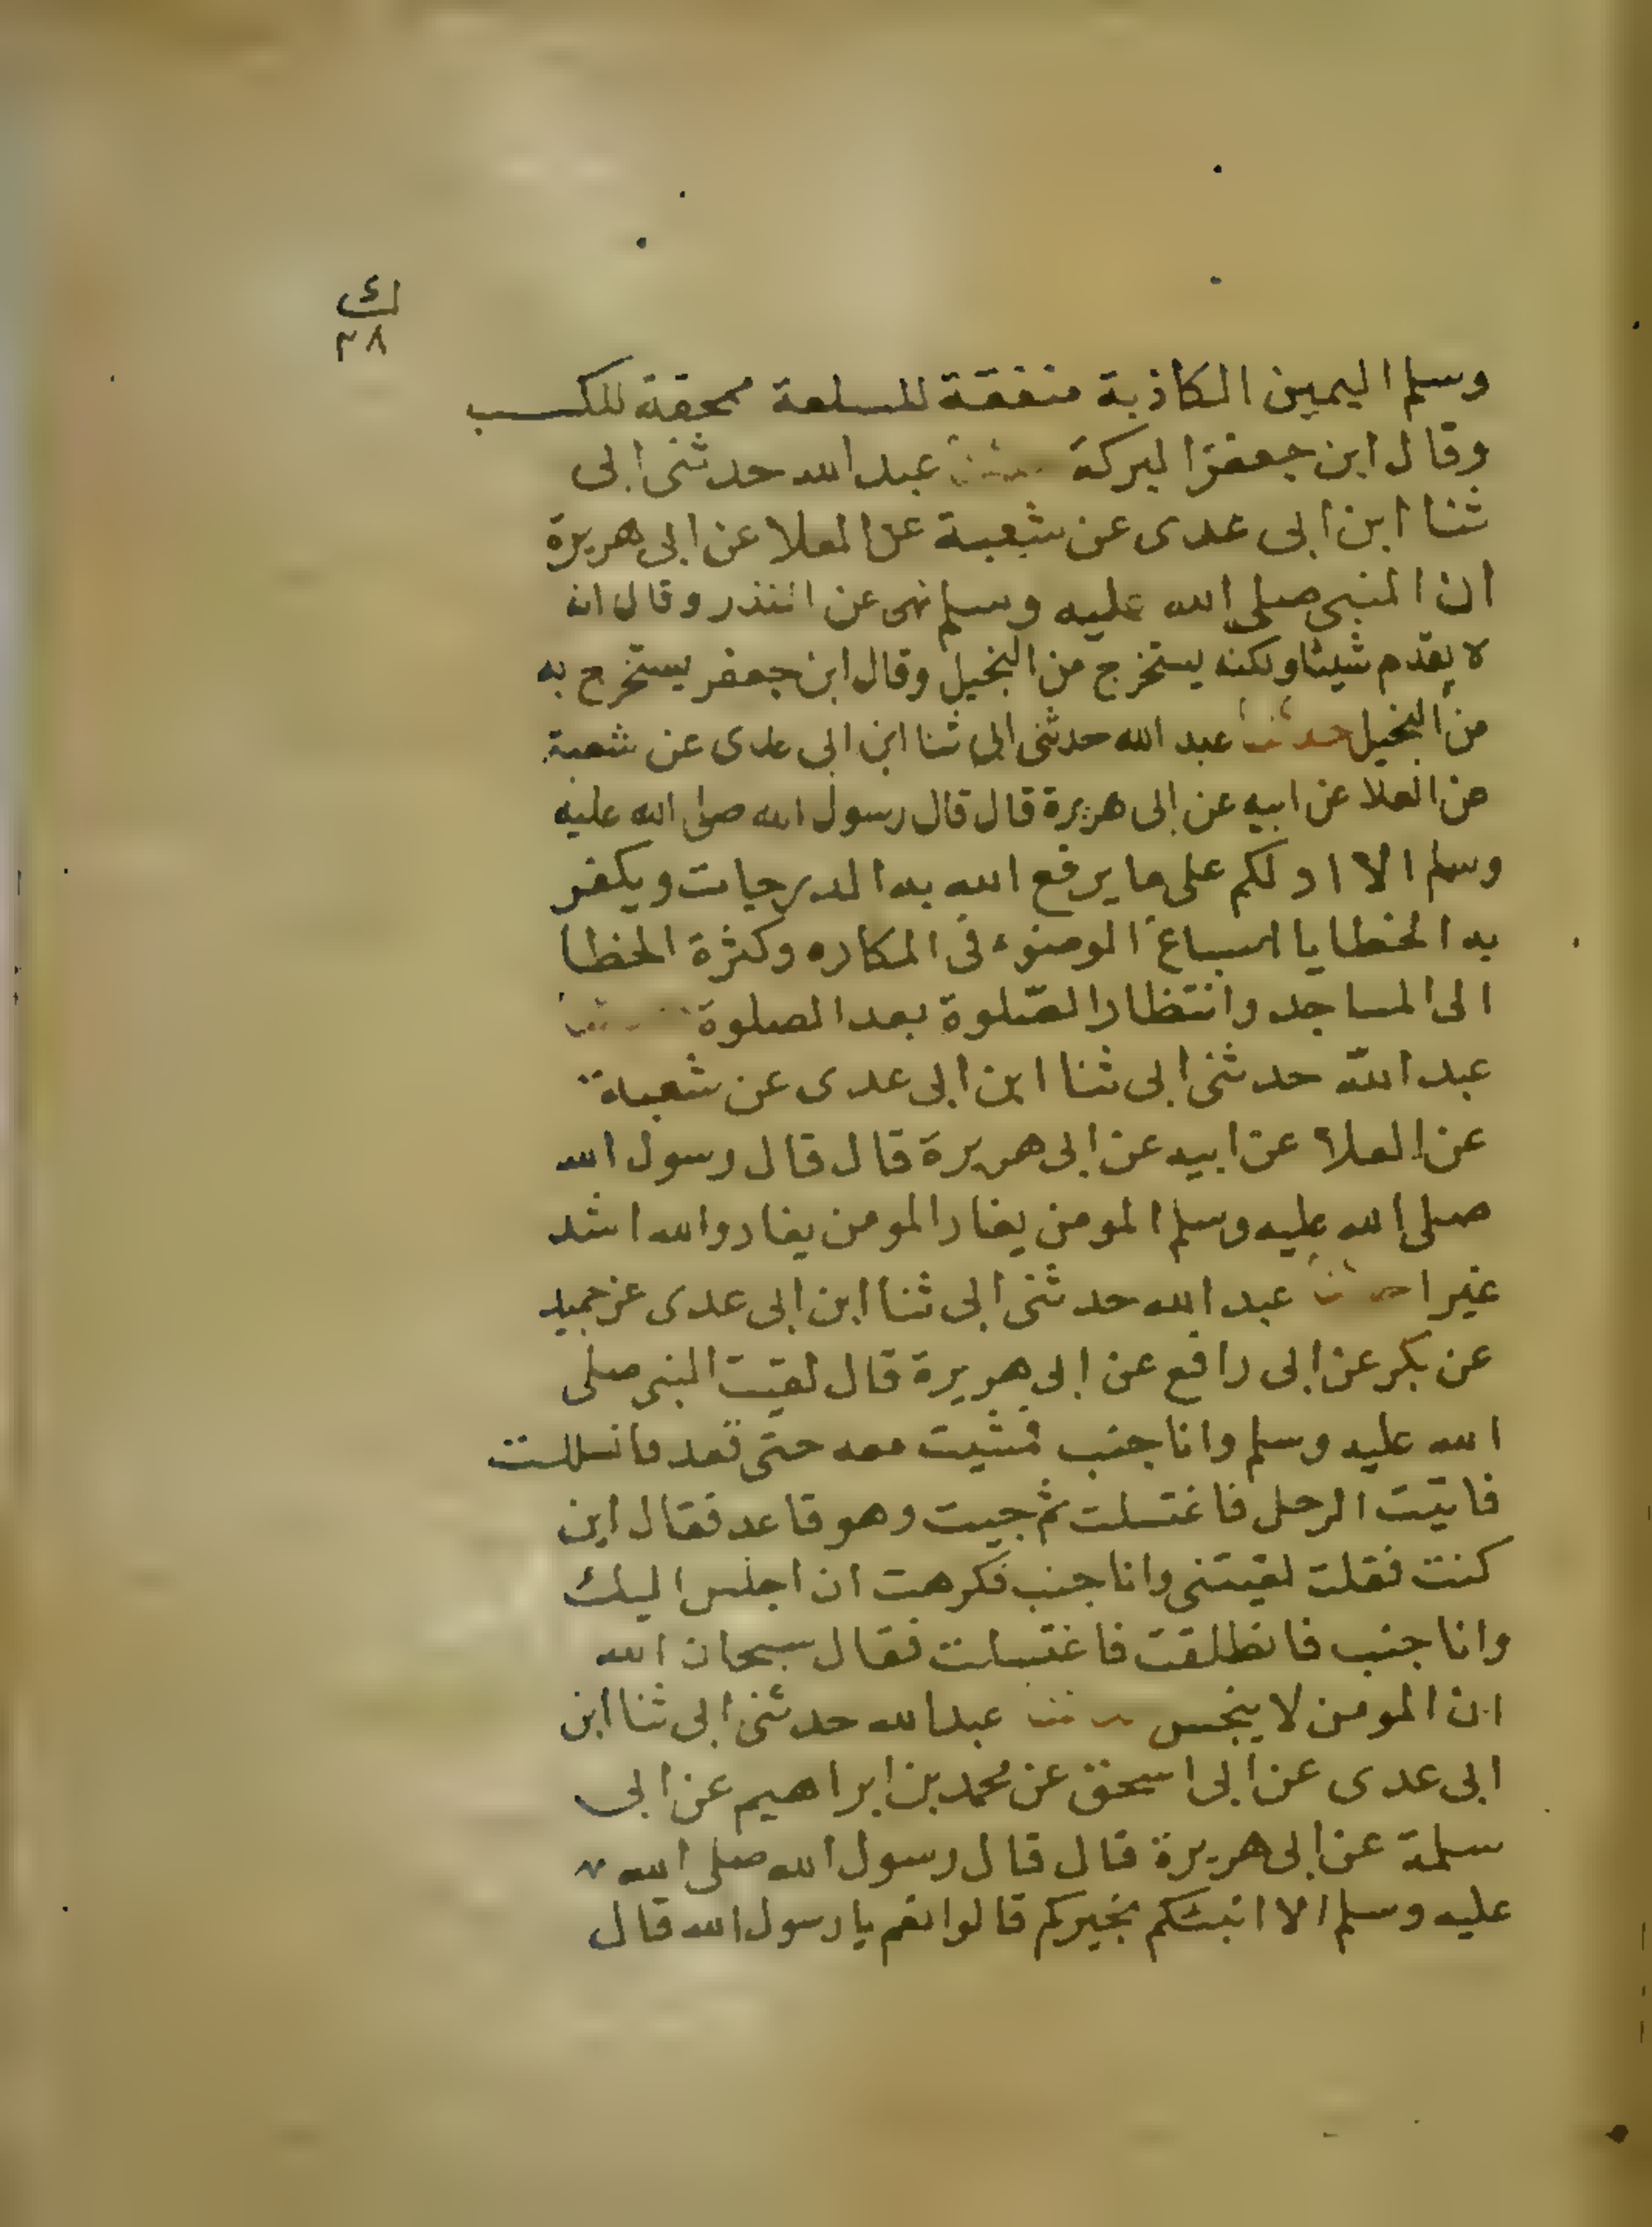 ك
٣٨
وسلم اليمين الكاذبة منفقة للسلعة ممحقة للكسب
وقال ابن جعفر البركة حدثنا عبد الله حدثنى ابى
ثنا ابن ابى عدى عن شعبة عن العلا عن ابى هريرة
ان النبى صلى الله عليه وسلم نهى عن النذر وقال انه
لا يقدم شيئا ولكنه يستخرج من البخيل وقال ابن جعفر يستخرج به
من البخيل حدثنا عبد الله حدثنى ابى ثنا ابن ابى عدى عن شعبة
عن العلا عن ابيه عن ابى هريرة قال قال رسول الله صلى الله عليه
وسلم الا ادلكم على ما يرفع الله به الدرجات ويكفر
به الخطايا اسباغ الوضوء فى المكاره وكثرة الخطا
الى المساجد وانتظار الصّلوة بعد الصلوة حدثنا
عبد الله حدثنى ابى ثنا ابن ابى عدى عن شعبة
عن العلا عن ابيه عن ابى هريرة قال قال رسول الله
صلى الله عليه وسلم المومن يغار المومن يغار والله اشد
غيرا حدثنا عبد الله حدثنى ابى ثنا ابن ابى عدى عن حميد
عن بكر عن ابى رافع عن ابى هريرة قال لقيت النبى صلى
الله عليه وسلم وانا جنب فمشيت معه حتى قعد فانسللت
فاتيت الرحل فاغتسلت ثم جيت وهو قاعد فقال اين
كنت فقلت لقيتنى وانا جنب فكرهت ان اجلس اليك
وانا جنب فانطلقت فاغتسلت فقال سبحان الله
ان المومن لا ينجس حدثنا عبد الله حدثنى ابى ثنا ابن
ابى عدى عن ابى اسحق عن محمد بن ابراهيم عن ابى
سلمة عن ابى هريرة قال قال رسول الله صلى الله
عليه وسلم الا انبئكم بخيركم قالوا نعم يا رسول الله قال